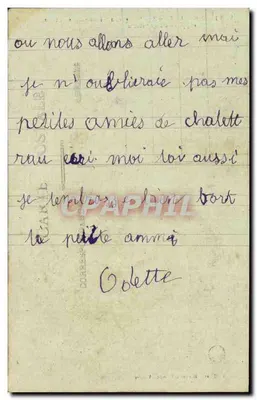 ou nous allons aller mai
je n'oublieraie pas mes
petites amies de chalett
rau moi toi aussi
je tembras bien fort
ta petite ammi
Odette
CARTE POSTALE
CPAPHIL